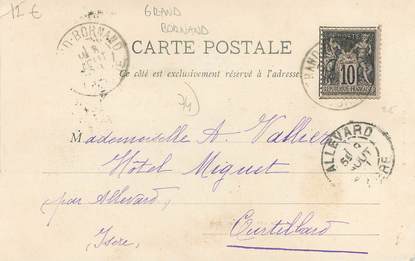 12 €
GRAND
BORNAND
CARTE POSTALE
Ce côté est exclusivement réservé à l'adresse.
POSTE
10
D-BORNAND
74
Mademoiselle A. Vallier
Hôtel Miguet
par Allevard
Curtillard
Isère
ALLEVARD
AOUT